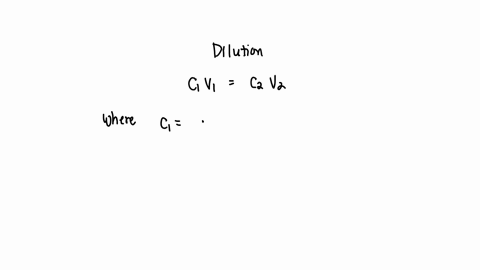 Dilution
C₁ V₁ = C₂ V₂
where C₁ =